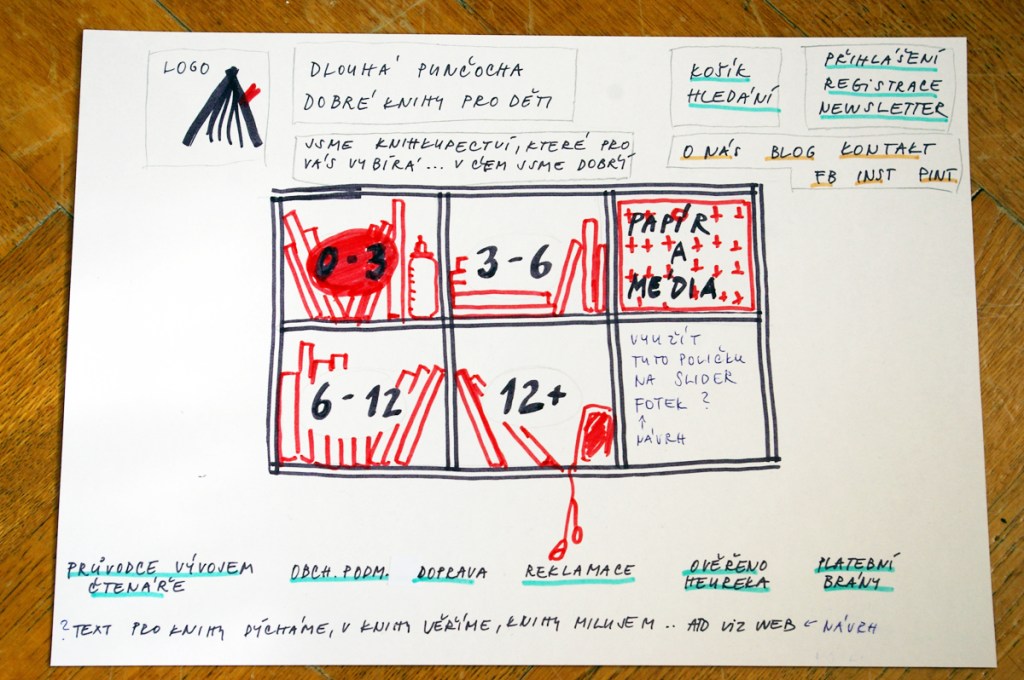 LOGO
DLOUHÁ PUNČOCHA
DOBRÉ KNIHY PRO DĚTI
JSME KNIHKUPECTVÍ, KTERÉ PRO
VÁS VYBÍRÁ... V ČEM JSME DOBŘÍ
KOŠÍK
HLEDÁNÍ
PŘIHLÁŠENÍ
REGISTRACE
NEWSLETTER
O NÁS BLOG KONTAKT
FB INST PINT
0-3
3-6
PAPÍR
A
MÉDIA
6-12
12+
VYUŽÍT
TUTO POLIČKU
NA SLIDER
FOTEK ?
↑
NÁVRH
PRŮVODCE VÝVOJEM
ČTENÁŘE
OBCH. PODM.
DOPRAVA
REKLAMACE
OVĚŘENO
HEUREKA
PLATEBNÍ
BRÁNY
? TEXT PRO KNIHY DÝCHÁME, V KNIHY VĚŘÍME, KNIHY MILUJEM .. ATD VIZ WEB ← NÁVRH